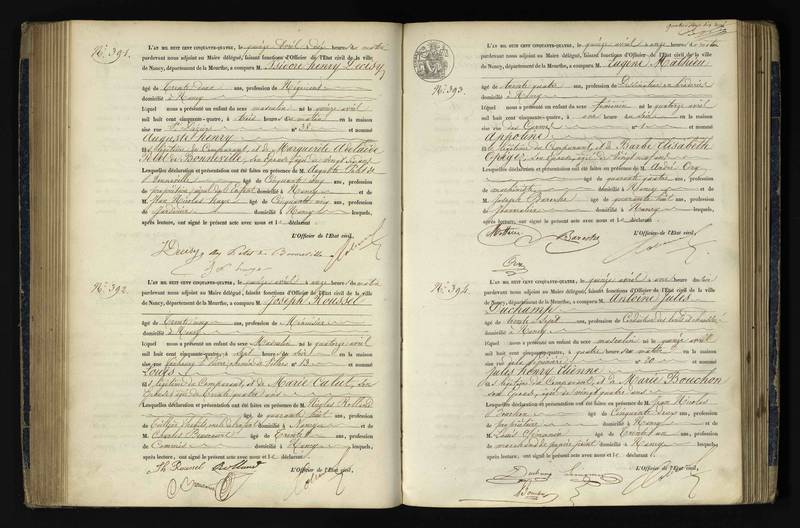 N.° 391.
L'AN MIL HUIT CENT CINQUANTE-QUATRE, le quinze avril dix heures du matin
pardevant nous adjoint au Maire délégué, faisant fonctions d'Officier de l'Etat civil de la ville
de Nancy, département de la Meurthe, a comparu M. Isidore henry
âgé de trente ans, profession de
domicilié à Nancy
lequel nous a présenté un enfant du sexe masculin né le quinze avril
mil huit cent cinquante-quatre, à trois heures du matin en la maison
sise rue St n° 38 et nommé
Auguste henry
fils légitime du Comparant, et de Marguerite Adélaïde
Petit de Bonneville, son épouse, âgée de vingt
Lesquelles déclaration et présentation ont été faites en présence de M. Auguste Petit de
Bonneville âgé de Cinquante ans, profession
de propriétaire, ayeul de l'enfant domicilié à Nancy et de
M. Jean Nicolas âgé de Cinquante ans, profession
de Jardinier domicilié à Nancy lesquels,
après lecture, ont signé le présent acte avec nous et le déclarant
L'Officier de l'Etat civil,
Petit de Bonneville
N.° 392.
L'AN MIL HUIT CENT CINQUANTE-QUATRE, le quinze avril à onze heures du matin
pardevant nous adjoint au Maire délégué, faisant fonctions d'Officier de l'Etat civil de la ville
de Nancy, département de la Meurthe, a comparu M. Joseph Roussel
âgé de trente ans, profession de
domicilié à Nancy
lequel nous a présenté un enfant du sexe Masculin né le quatorze avril
mil huit cent cinquante-quatre, à sept heures du soir en la maison
sise n° 13 et nommé
Louis
fils légitime du Comparant, et de Marie son
épouse, âgée de trente quatre ans
Lesquelles déclaration et présentation ont été faites en présence de M. Nicolas
âgé de quarante huit ans, profession
de domicilié à Nancy et de
M. Charles âgé de trente ans, profession
de Commis domicilié à Nancy lesquels,
après lecture, ont signé le présent acte avec nous et le déclarant
L'Officier de l'Etat civil,
Roussel
N.° 393.
L'AN MIL HUIT CENT CINQUANTE-QUATRE, le quinze avril à onze heures du matin
pardevant nous adjoint au Maire délégué, faisant fonctions d'Officier de l'Etat civil de la ville
de Nancy, département de la Meurthe, a comparu M. Eugène Mathieu
âgé de trente quatre ans, profession de Dessinateur en broderies
domicilié à Nancy
lequel nous a présenté un enfant du sexe féminin né le quatorze avril
mil huit cent cinquante-quatre, à une heure du soir en la maison
sise rue des Carmes n° 1 et nommé
Appoline
fille légitime du Comparant, et de Barbe Elisabeth
son épouse, âgée de vingt neuf ans
Lesquelles déclaration et présentation ont été faites en présence de M. André Ory
âgé de quarante quatre ans, profession
de domicilié à Nancy et de
M. Joseph âgé de quarante huit ans, profession
de domicilié à Nancy lesquels,
après lecture, ont signé le présent acte avec nous et le déclarant
L'Officier de l'Etat civil,
Mathieu
Ory
N.° 394.
L'AN MIL HUIT CENT CINQUANTE-QUATRE, le quinze avril à une heure du soir
pardevant nous adjoint au Maire délégué, faisant fonctions d'Officier de l'Etat civil de la ville
de Nancy, département de la Meurthe, a comparu M. Antoine Jules
Duchamp
âgé de trente sept ans, profession de Conducteur des Ponts et chaussées
domicilié à Nancy
lequel nous a présenté un enfant du sexe masculin né le quinze avril
mil huit cent cinquante-quatre, à quatre heures du matin en la maison
sise rue de la pépinière n° 20 et nommé
Jules henry étienne
fils légitime du Comparant, et de Marie Bouchon
son épouse, âgée de vingt quatre ans
Lesquelles déclaration et présentation ont été faites en présence de M. Jean Nicolas
Bouchon âgé de Cinquante deux ans, profession
de propriétaire domicilié à Nancy et de
M. Louis âgé de trente ans, profession
de marchand de papiers peints domicilié à Nancy lesquels,
après lecture, ont signé le présent acte avec nous et le déclarant
L'Officier de l'Etat civil,
Duchamp